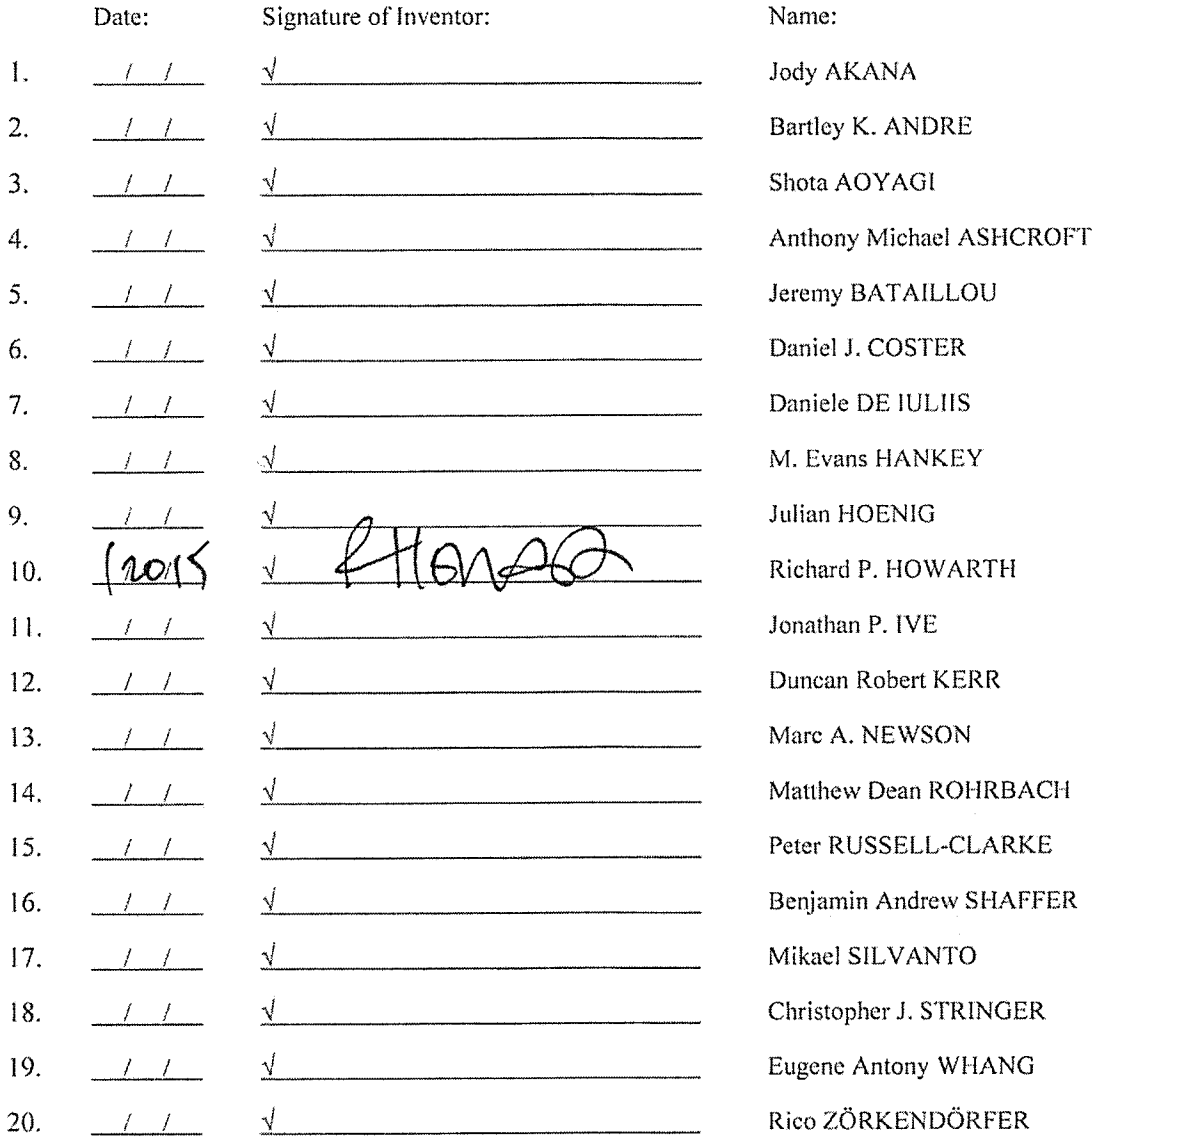 Date: Signature of Inventor: Name:
1. / / √ Jody AKANA
2. / / √ Bartley K. ANDRE
3. / / √ Shota AOYAGI
4. / / √ Anthony Michael ASHCROFT
5. / / √ Jeremy BATAILLOU
6. / / √ Daniel J. COSTER
7. / / √ Daniele DE IULIIS
8. / / √ M. Evans HANKEY
9. / / √ Julian HOENIG
10. √ Richard P. HOWARTH
11. / / √ Jonathan P. IVE
12. / / √ Duncan Robert KERR
13. / / √ Marc A. NEWSON
14. / / √ Matthew Dean ROHRBACH
15. / / √ Peter RUSSELL-CLARKE
16. / / √ Benjamin Andrew SHAFFER
17. / / √ Mikael SILVANTO
18. / / √ Christopher J. STRINGER
19. / / √ Eugene Antony WHANG
20. / / √ Rico ZÖRKENDÖRFER